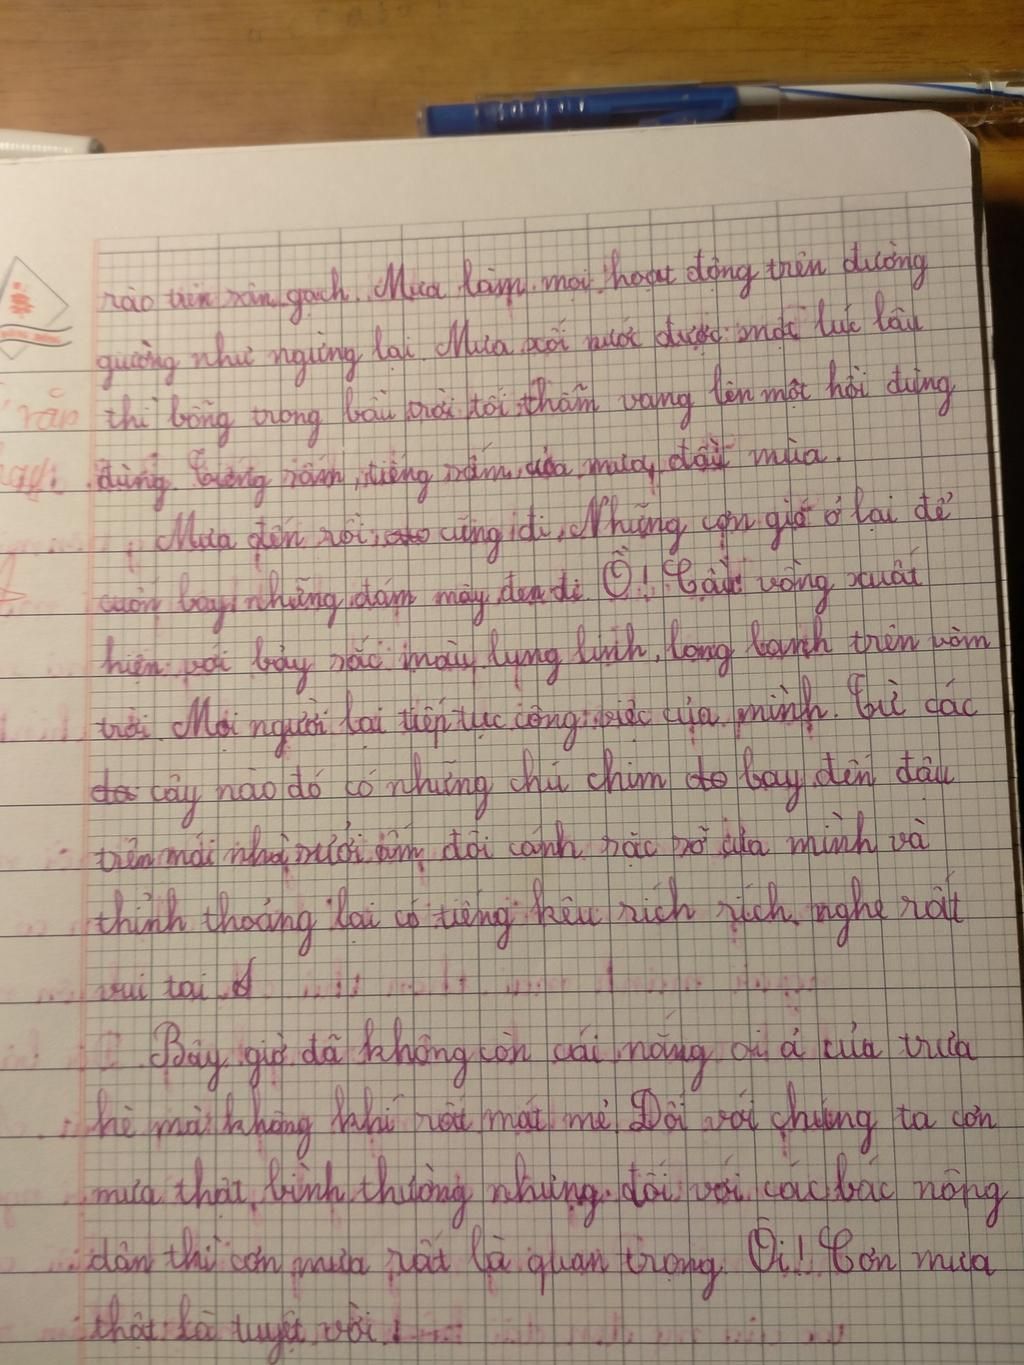 rào trên sân gạch. Mưa làm mọi hoạt động trên đường
gường như ngừng lại. Mưa xối nước được một lúc lâu
thì bỗng trong bầu trời tối thẫm vang lên một hồi đùng
đùng tiếng sấm, tiếng sấm của mưa đầu mùa.
Mưa đến rồi cũng đi, Những cơn gió ở lại để
cuốn bay những đám mây đen đi Ồ! Cầu vồng xuất
hiện với bảy sắc màu lung linh, long lanh trên vòm
trời. Mọi người lại tiếp tục công việc của mình. Từ các
cây nào đó có những chú chim bay đến đâu
trên mái nhà sưởi ấm đôi cánh sặc sỡ của mình và
thỉnh thoảng lại có tiếng kêu rích rích nghe rất
vui tai.
Bây giờ đã không còn cái nắng oi ả của trưa
hè mà không khí rất mát mẻ. Đối với chúng ta cơn
mưa thật bình thường nhưng đối với các bác nông
dân thì cơn mưa rất là quan trọng. Ôi! Cơn mưa
thật là tuyệt vời!
ráp